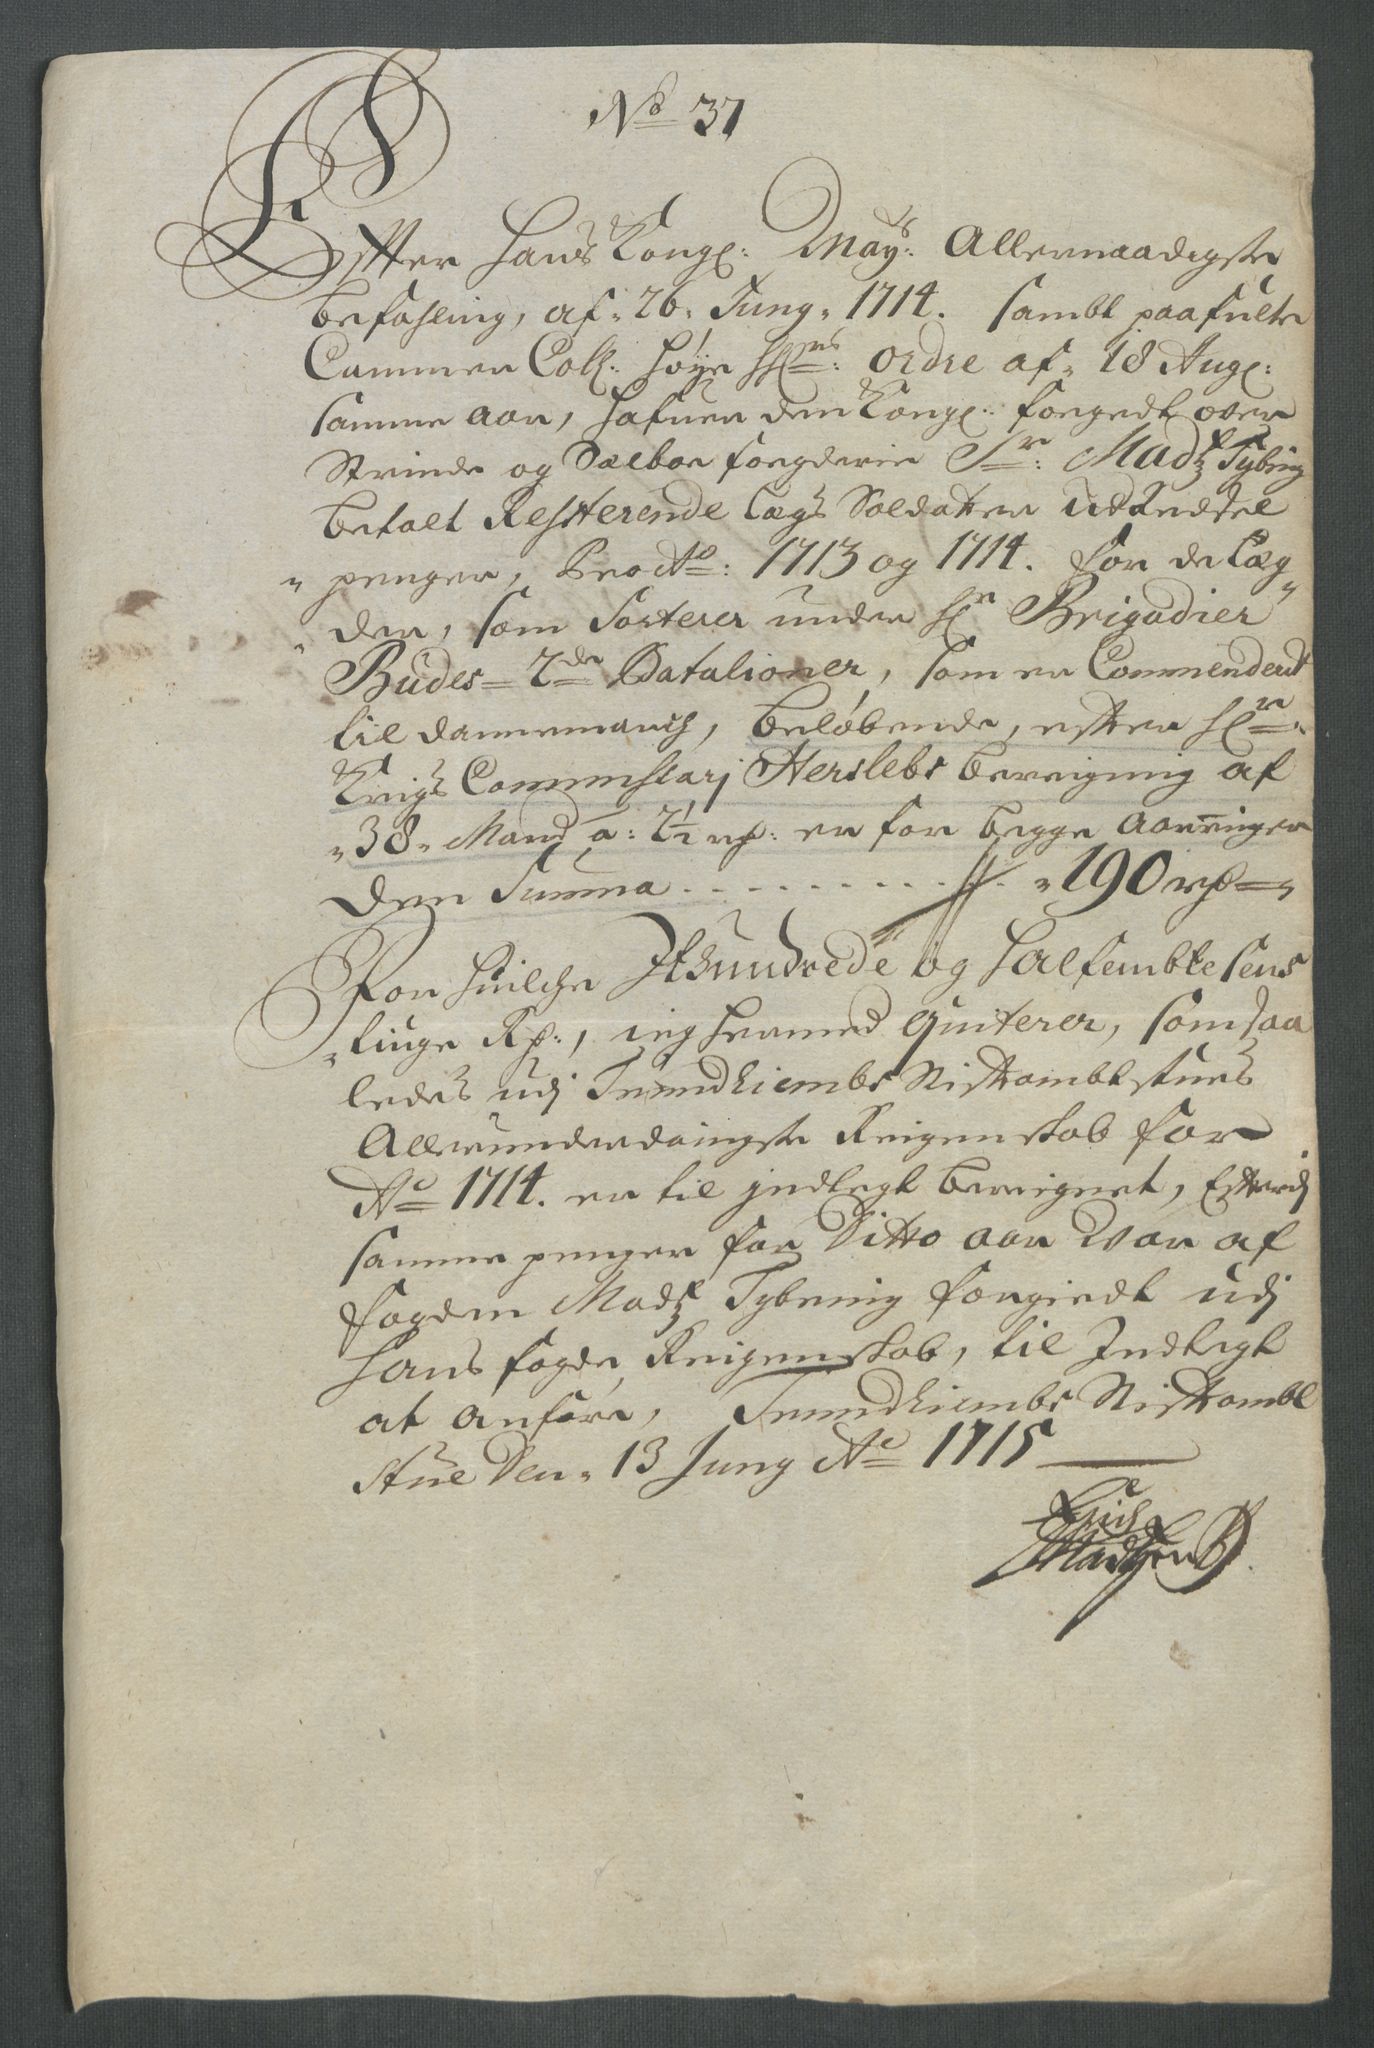 No 37
Effter Hans Kongl: Mayts: Allernaadigste
befahling, af 26 Juny 1714. sambt paafulte
Cammer Coll: høye HErrs: Ordre af 18 Augl:
samme aar, hafuer den Kongl: foeged ofver
Strinde og Sælboe foegderie Sr: Madtz Tybring
betalt Ressterende Lægs Soldatter Udredsel
penger, Pro Ao: 1713 og 1714. for de Læg
der, som Sorterer under Hr Brigadier
Budes 2de Batalioner, som er Commenderet
til dannemarch, beløbende, efter Hr:
Krigs Commissarj Herslebs bereigning af
38 Mand a: 2½ rd: er for begge aaringer
den Summa . . . . . . . . . . 190 rd
For huilche Ithundrede og halfembtesens
tiuge Rd:, ieg hermed qviterer, som saa
ledes udj Trundhiembs Stifftambtstues
Allerunderdaingste Reigenskab for
Ao 1714. er til jndtegt bereignet, Efterdj
samme penger for Ditto aar var af
fogden Madtz Tybring forgiedt udj
hans fogde Reigenskab, til Indtegt
at anføre, Trundhiembs Stifftambt
stue Den 13 Juny Ao 1715
Erich
Madtzen